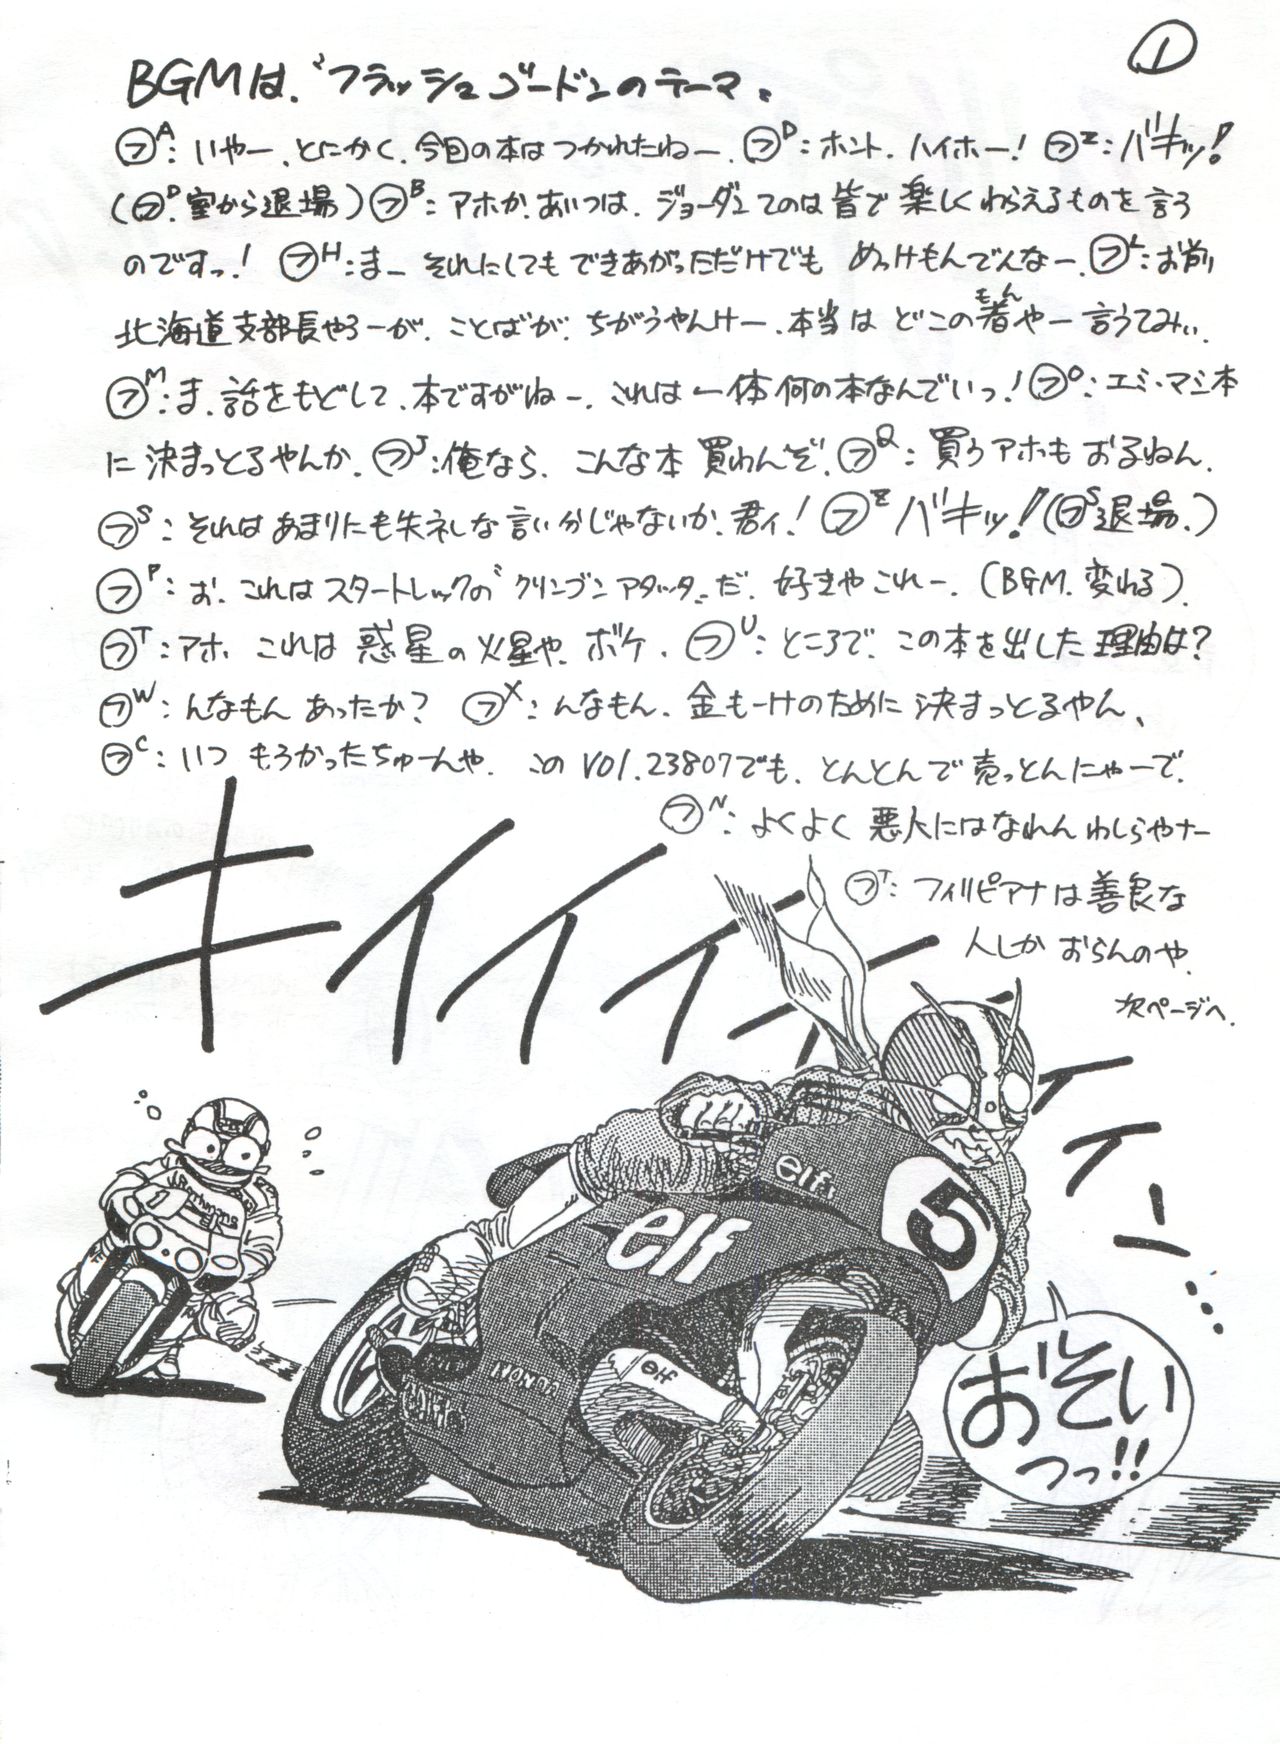 ①
BGMは、〝フラッシュゴードンのテーマ。
㋫A:いやー、とにかく、今回の本はつかれたねー、㋫D:ホント、ハイホー！㋫Z:バキッ！
(㋫D、室から退場)㋫B:アホか、あいつは、ジョーダンてのは皆で楽しくわらえるものを言う
のですっ！ ㋫H:まー それにしてもできあがっただけでも めっけもんでんなー、㋫L:お前
北海道支部長やろーが、ことばが、ちがうやんけー、本当はどこの者(もん)やー言うてみぃ、
㋫M:ま、話をもどして、本ですがねー、これは一体何の本なんでいっ！㋫O:エミ・マミ本
に決まっとるやんか、㋫J:俺なら、こんな本買わんぞ、㋫Q:買うアホもおるねん、
㋫S:それはあまりにも失礼な言い分じゃないか、君ィ！㋫Z バキッ！(㋫S退場、)
㋫P:お、これはスタートレックの〝クリンゴンアタック〟だ、好きやこれー、(BGM、変わる)、
㋫T:アホ、これは惑星の火星や、ボケ、㋫U:ところで、この本を出した理由は?
㋫W:んなもんあったか? ㋫X:んなもん、金もーけのために決まっとるやん、
㋫C:いつもうかったちゅーんや、このVOl.23807でも、とんとんで売っとんにゃーで、
㋫N:よくよく悪人にはなれんわしらやナー
㋫T:フィリピアナは善良な
人しかおらんのや、
次ページへ、
キイイイイイイイー…
elf
elf
5
elf
HONDA
elf
Rothmans
おそい
っっ!!